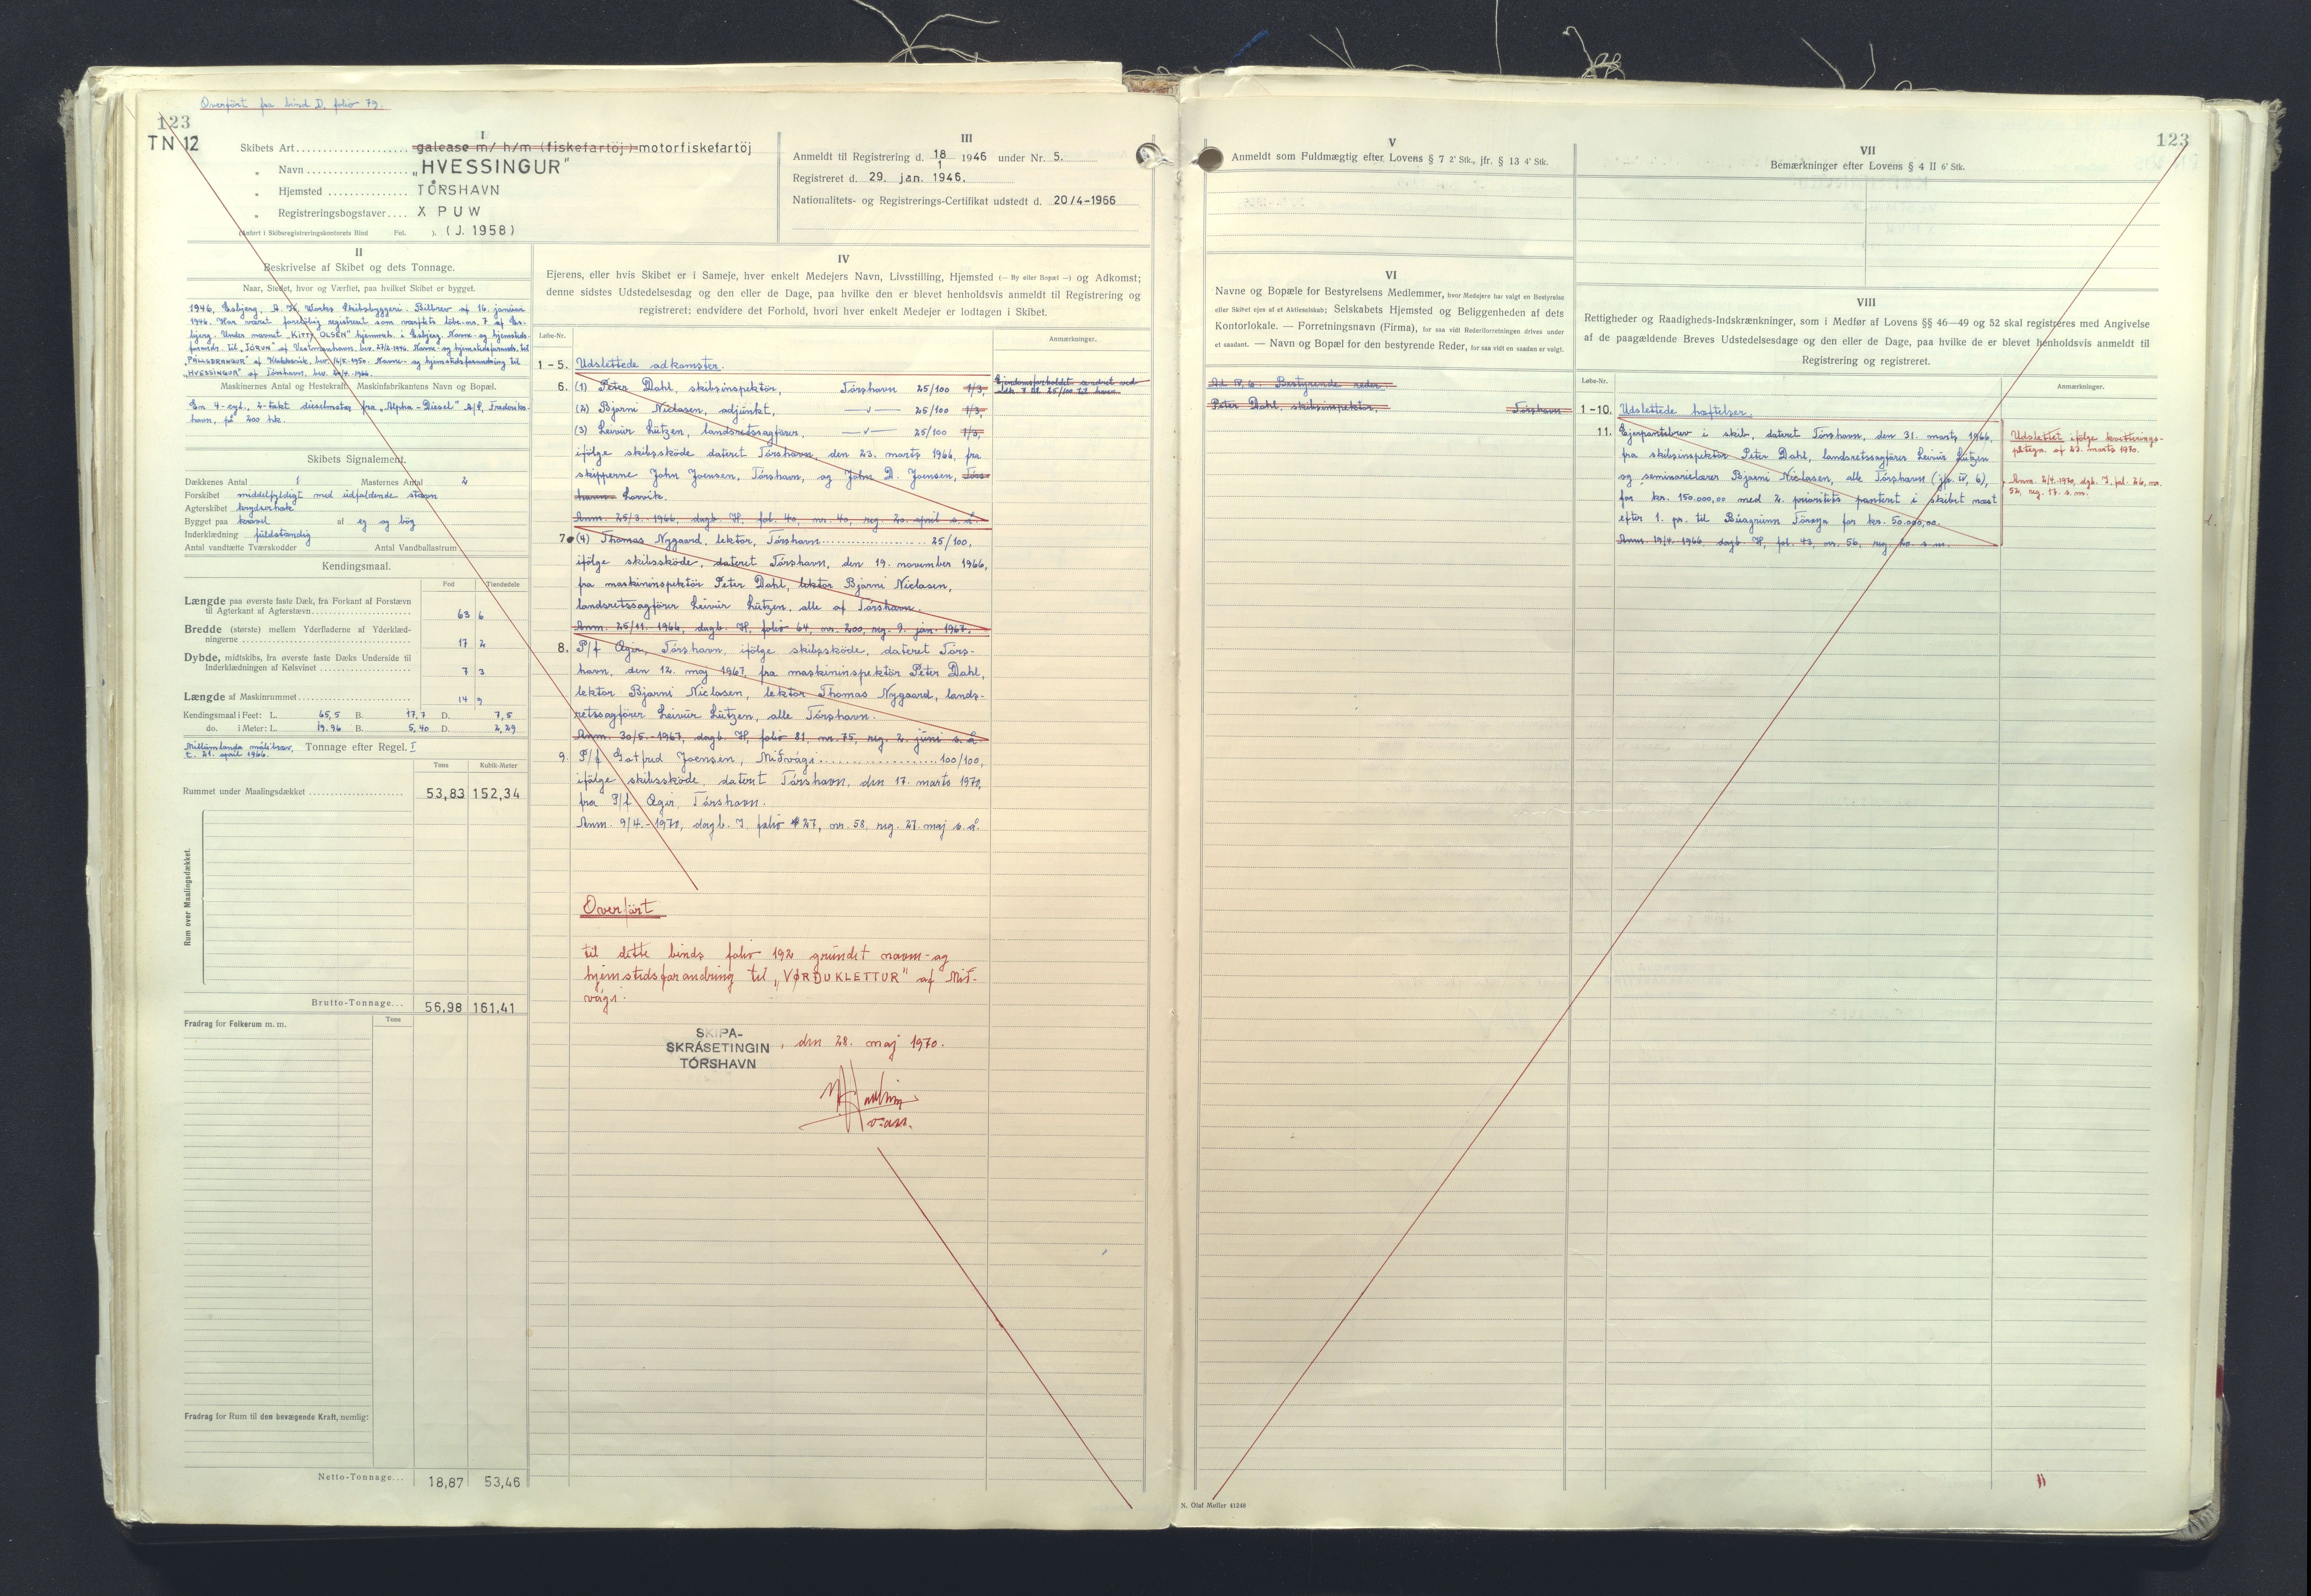 Overført fra bind D. folio 79.
123
TN 12
I
Skibets Art galease m/ h/m (fiskefartöj) motorfiskefartöj
„ Navn „HVESSINGUR"
„ Hjemsted TÓRSHAVN
„ Registreringsbogstaver X P U W
(Anført i Skibsregistreringskontorets Bind Fol. ). (J. 1958)
III
Anmeldt til Registrering d. 18/1 1946 under Nr. 5.
Registreret d. 29. jan. 1946.
Nationalitets- og Registrerings-Certifikat udstedt d. 20/4-1966
II
Beskrivelse af Skibet og dets Tonnage.
Naar, Stedet, hvor og Værftet, paa hvilket Skibet er bygget.
1946, Esbjerg, A. H. Warks Skibsbyggeri. Bilbrev af 16. januar
1946. Har været foreløbig registreret som værftets løbe-nr. 7 af Es-
bjerg. Under navnet „KITTY OLSEN" hjemmeh. i Esbjerg. Navne- og hjemsteds-
forandr. til „JÓRUN" af Vestmanhavn, bev. 27/2-1946. Navne- og hjemstedsforandr. til
„PÁLLSDRANGUR" af Klaksvik, bev. 16/5-1950. Navne- og hjemstedsforandring til
„HVESSINGUR" af Tórshavn, bev. 20/4-1966.
Maskinernes Antal og Hestekraft. Maskinfabrikantens Navn og Bopæl.
En 4-cyl., 2-takt dieselmotor fra „Alpha-Diesel" A/S, Frederiks-
havn, på 200 hk.
Skibets Signalement.
Dækkenes Antal 1 Masternes Antal 2
Forskibet middelfyldigt med udfaldende stævn
Agterskibet krydserhæk
Bygget paa kravel af eg og bøg
Inderklædning fuldstændig
Antal vandtætte Tværskodder Antal Vandballastrum
Kendingsmaal.
Fod Tiendedele
Længde paa øverste faste Dæk, fra Forkant af Forstævn
til Agterkant af Agterstævn 63 6
Bredde (største) mellem Yderfladerne af Yderklæd-
ningerne 17 2
Dybde, midtskibs, fra øverste faste Dæks Underside til
Inderklædningen af Kølsvinet 7 3
Længde af Maskinrummet 14 9
Kendingsmaal i Feet: L. 65,5 B. 17,7 D. 7,5
do. i Meter: L. 19.96 B. 5,40 D. 2,29
Millumlanda málibræv,
t. 21. apríl 1966. Tonnage efter Regel I
Tons Kubik-Meter
Rummet under Maalingsdækket 53,83 152,34
Rum over Maalingsdækket.
Brutto-Tonnage... 56,98 161,41
Fradrag for Folkerum m. m. Tons
Fradrag for Rum til den bevægende Kraft, nemlig:
Netto-Tonnage... 18,87 53,46
IV
Ejerens, eller hvis Skibet er i Sameje, hver enkelt Medejers Navn, Livsstilling, Hjemsted (— By eller Bopæl —) og Adkomst;
denne sidstes Udstedelsesdag og den eller de Dage, paa hvilke den er blevet henholdsvis anmeldt til Registrering og
registreret; endvidere det Forhold, hvori hver enkelt Medejer er lodtagen i Skibet.
Løbe-Nr. Anmærkninger.
1 - 5. Udslettede adkomster.
6. (1) Peter Dahl, skibsinspektør, Tórshavn 25/100 1/3, Ejendomsforholdet ændret ved
løb. 7 til 25/100 til hver.
(2) Bjarni Niclasen, adjunkt, —v— 25/100 1/3,
(3) Leivur Lützen, landsretssagfører, —v— 25/100 1/3,
ifølge skibsskøde dateret Tórshavn, den 23. marts 1966, fra
skipperne John Joensen, Tórshavn, og John D. Joensen, Tórs-
havn Lorvik.
Anm. 25/3.-1966, dagb. H, fol. 40, nr. 40, reg. 20. april s. å.
7. (4) Thomas Nygaard, lektor, Tórshavn 25/100,
ifølge skibsskøde, dateret Tórshavn, den 19. november 1966,
fra maskininspektør Peter Dahl, lektor Bjarni Niclasen,
landsretssagfører Leivur Lützen, alle af Tórshavn.
Anm. 25/11.-1966, dagb. H, folio 64, nr. 200, reg. 9. jan. 1967.
8. P/f Ægir, Tórshavn, ifølge skibsskøde, dateret Tórs-
havn, den 12. maj 1967, fra maskininspektør Peter Dahl,
lektor Bjarni Niclasen, lektor Thomas Nygaard, lands-
retssagfører Leivur Lützen, alle Tórshavn.
Anm. 30/5.-1967, dagb. H, folio 81, nr. 75, reg. 2. juni s. å.
9. P/f Gotfred Joensen, Miðvági 100/100,
ifølge skibsskøde, dateret Tórshavn, den 17. marts 1970,
fra P/f Ægir, Tórshavn.
Anm. 9/4.-1970, dagb. I, folio 27, nr. 58, reg. 27. maj s. å.
Overført
til dette binds folio 192 grundet navn- og
hjemstedsforandring til „VØRÐUKLETTUR" af Mið-
vági.
SKIPA-
SKRÁSETINGIN
TÓRSHAVN
, den 28. maj 1970.
123
V
Anmeldt som Fuldmægtig efter Lovens § 7 2' Stk., jfr. § 13 4' Stk.
VI
Navne og Bopæle for Bestyrelsens Medlemmer, hvor Medejere har valgt en Bestyrelse
eller Skibet ejes af et Aktieselskab; Selskabets Hjemsted og Beliggenheden af dets
Kontorlokale. — Forretningsnavn (Firma), for saa vidt Rederiforretningen drives under
et saadant. — Navn og Bopæl for den bestyrende Reder, for saa vidt en saadan er valgt.
Ad IV, 6. Bestyrende reder.
Peter Dahl, skibsinspektør, Tórshavn
VII
Bemærkninger efter Lovens § 4 II 6' Stk.
VIII
Rettigheder og Raadigheds-Indskrænkninger, som i Medfør af Lovens §§ 46—49 og 52 skal registreres med Angivelse
af de paagældende Breves Udstedelsesdag og den eller de Dage, paa hvilke de er blevet henholdsvis anmeldt til
Registrering og registreret.
Løbe-Nr. Anmærkninger.
1 - 10. Udslettede hæftelser.
11. Ejerpantebrev i skib, dateret Tórshavn, den 31. marts 1966,
fra skibsinspektør Peter Dahl, landsretssagfører Leivur Lützen
og seminarielærer Bjarni Niclasen, alle Tórshavn (jfr. IV, 6),
for kr. 150.000,00 med 2. prioritets panteret i skibet næst
efter 1. pr. til Búnagrunn Føroya for kr. 50.000,00.
Anm. 19/4.-1966, dagb. H, fol. 43, nr. 56, reg. 20. s. m.
Udslettet ifølge kvitterings-
påtegn. af 23. marts 1970.
Anm. 2/4.1970, dgb. I, fol. 26, nr.
52, reg. 17. s. m.
N. Olaf Møller 41248